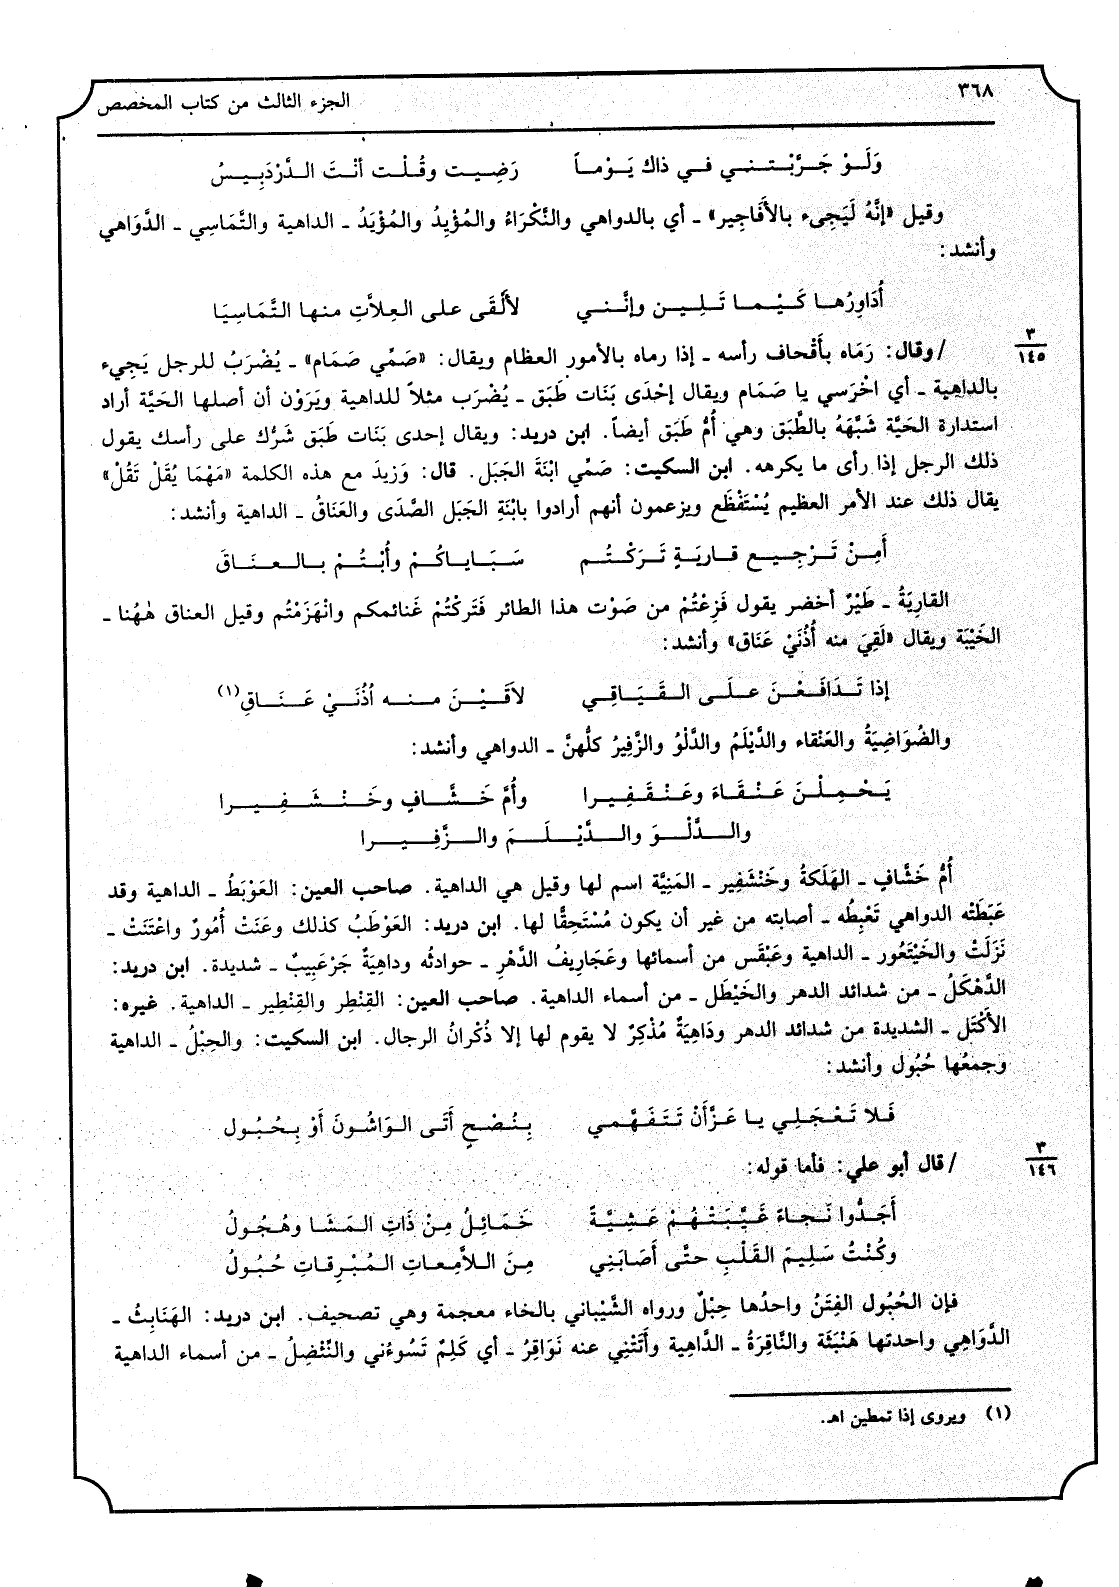 ٣٦٨
الجزء الثالث من كتاب المخصص
وَلَوْ جَرَّبْتَني في ذاك يَوْماً رَضِيت وقُلْت أنْتَ الدَّرْدَبِيسُ
وقيل «إنَّهُ لَيَجِيء بالأَفَاجِير» ـ أي بالدواهي والنَّكْرَاءُ والمُؤْيِدُ والمُؤْيَدُ ـ الداهية والتَّمَاسِي ـ الدَّوَاهي
وأنشد:
أُدَاوِرُها كَيْما تَلِين وإنَّني لأَلْقَى على العِلاَّتِ منها التَّمَاسِيَا
٣
١٤٥
/وقال: رَمَاه بأَقْحاف رأسه ـ إذا رماه بالأمور العظام ويقال: «صَمِّي صَمَام» ـ يُضْرَبُ للرجل يَجِيء
بالداهية ـ أي اخْرَسي يا صَمَام ويقال إحْدَى بَنَات طَبَق ـ يُضْرَب مثلاً للداهية ويَرَوْن أن أصلها الحَيَّة أراد
استدارة الحَيَّة شَبَّهَهُ بالطَّبَق وهي أُمُّ طَبَق أيضاً. ابن دريد: ويقال إحدى بَنَات طَبَق شَرُّك على رأسك يقول
ذلك الرجل إذا رأى ما يكرهه. ابن السكيت: صَمِّي ابْنَةَ الجَبَل. قال: وَزِيدَ مع هذه الكلمة «مَهْمَا يُقَلْ تَقُلْ»
يقال ذلك عند الأمر العظيم يُسْتَفْظَع ويزعمون أنهم أرادوا بابْنَةِ الجَبَل الصَّدَى والعَنَاقُ ـ الداهية وأنشد:
أَمِنْ تَرْجِيعِ قارِيَةٍ تَرَكْتُم سَبَاياكُمْ وأُبْتُمْ بالعنَاقَ
القارِيَةُ ـ طَيْرٌ أخضر يقول فَزِعْتُمْ من صَوْت هذا الطائر فَتَركْتُمْ غَنائمكم وانْهَزَمْتُم وقيل العناق هٰهُنا ـ
الخَيْبَة ويقال «لَقِيَ منه أُذُنَيْ عَنَاق» وأنشد:
إذا تَدَافَعْنَ علَى القَيَاقِي لاَقَيْنَ منه أُذُنَيْ عَنَاقِ(١)
والضُوَاضِيَةُ والعَنْقاء والدَّيْلَمُ والدَّلْوُ والزَّفِيرُ كلُّهنَّ ـ الدواهي وأنشد:
يَحْمِلْنَ عَنْقَاءَ وعَنْقَفِيرا وأُمَّ خَشَّافٍ وخَنْشَفِيرا
والدَّلْوَ والدَّيْلَمَ والزَّفِيرا
أُمُّ خَشَّافِ ـ الهَلَكةُ وخَنْشَفِير ـ المَنِيَّة اسم لها وقيل هي الداهية. صاحب العين: العَوْبَطُ ـ الداهية وقد
عَبَطَتْه الدواهي تَعْبِطُه ـ أصابته من غير أن يكون مُسْتَحِقًّا لها. ابن دريد: العَوْطَبُ كذلك وعَنَتْ أُمُورٌ واعْتَنَتْ ـ
نَزَلَتْ والخَيْتَعُور ـ الداهية وعَبْقَس من أسمائها وعَجَارِيفُ الدَّهْرِ ـ حوادثُه وداهِيَةٌ جَرْعَبِيبٌ ـ شديدة. ابن دريد:
الدَّهْكَلُ ـ من شدائد الدهر والخَيْطَل ـ من أسماء الداهية. صاحب العين: القِنْطِر والقِنْطِير ـ الداهية. غيره:
الأَكْتَل ـ الشديدة من شدائد الدهر ودَاهِيَةٌ مُذْكِرٌ لا يقوم لها إلا ذُكْرانُ الرجال. ابن السكيت: والحِبْلُ ـ الداهية
وجمعُها حُبُول وأنشد:
فَلا تَعْجَلِي يا عَزَّ أَنْ تَتَفَهَّمي بِنُصْحٍ أَتَى الوَاشُونَ أَوْ بِحُبُول
٣
١٤٦
/قال أبو علي: فأما قوله:
أَجَدُّوا نَجاءً غَيَّبَتْهُمْ عَشِيَّةً خَمَائِلُ مِنْ ذَاتِ المَشَا وهُجُولُ
وكُنْتُ سَلِيمَ القَلْبِ حتَّى أَصَابَنِي مِنَ اللاَّمِعاتِ المُبْرِقاتِ حُبُولُ
فإن الحُبُول الفِتَنُ واحدُها حِبْلٌ ورواه الشَّيْباني بالخاء معجمة وهي تصحيف. ابن دريد: الهَنَابِثُ ـ
الدَّوَاهِي واحدتها هَنْبَثَة والنَّاقِرَةُ ـ الدَّاهِية وأَتَتْنِي عنه نَوَاقِرُ ـ أي كَلِمٌ تَسُوءُني والنِّئْضِلُ ـ من أسماء الداهية
(١) ويروى إذا تمطين اهـ.